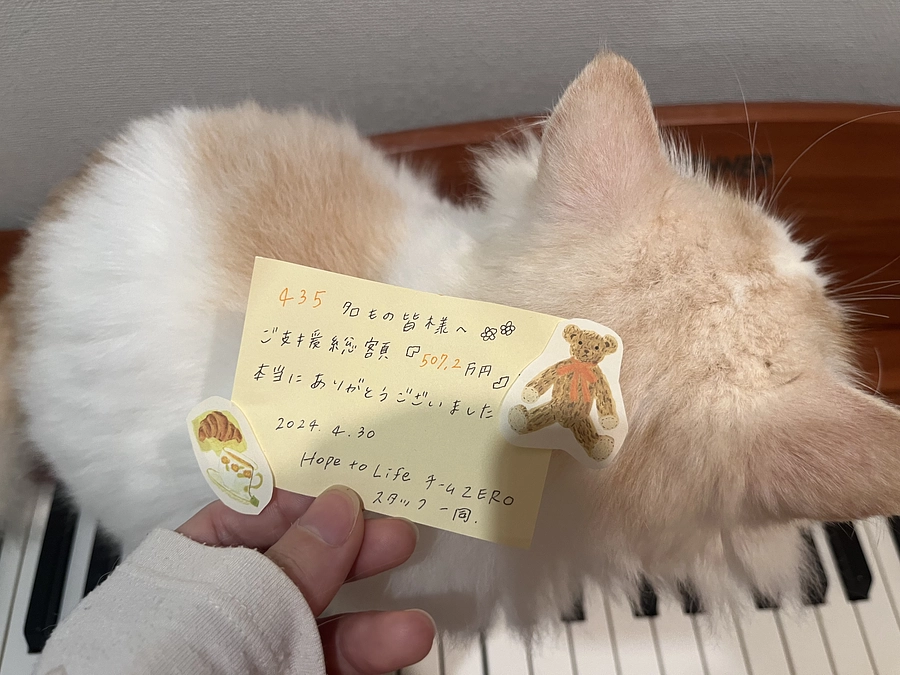 435 名もの皆様へ
ご支援総額 507.2万円
本当にありがとうございました
2024. 4.30
Hope to Life チームZERO
スタッフ一同.